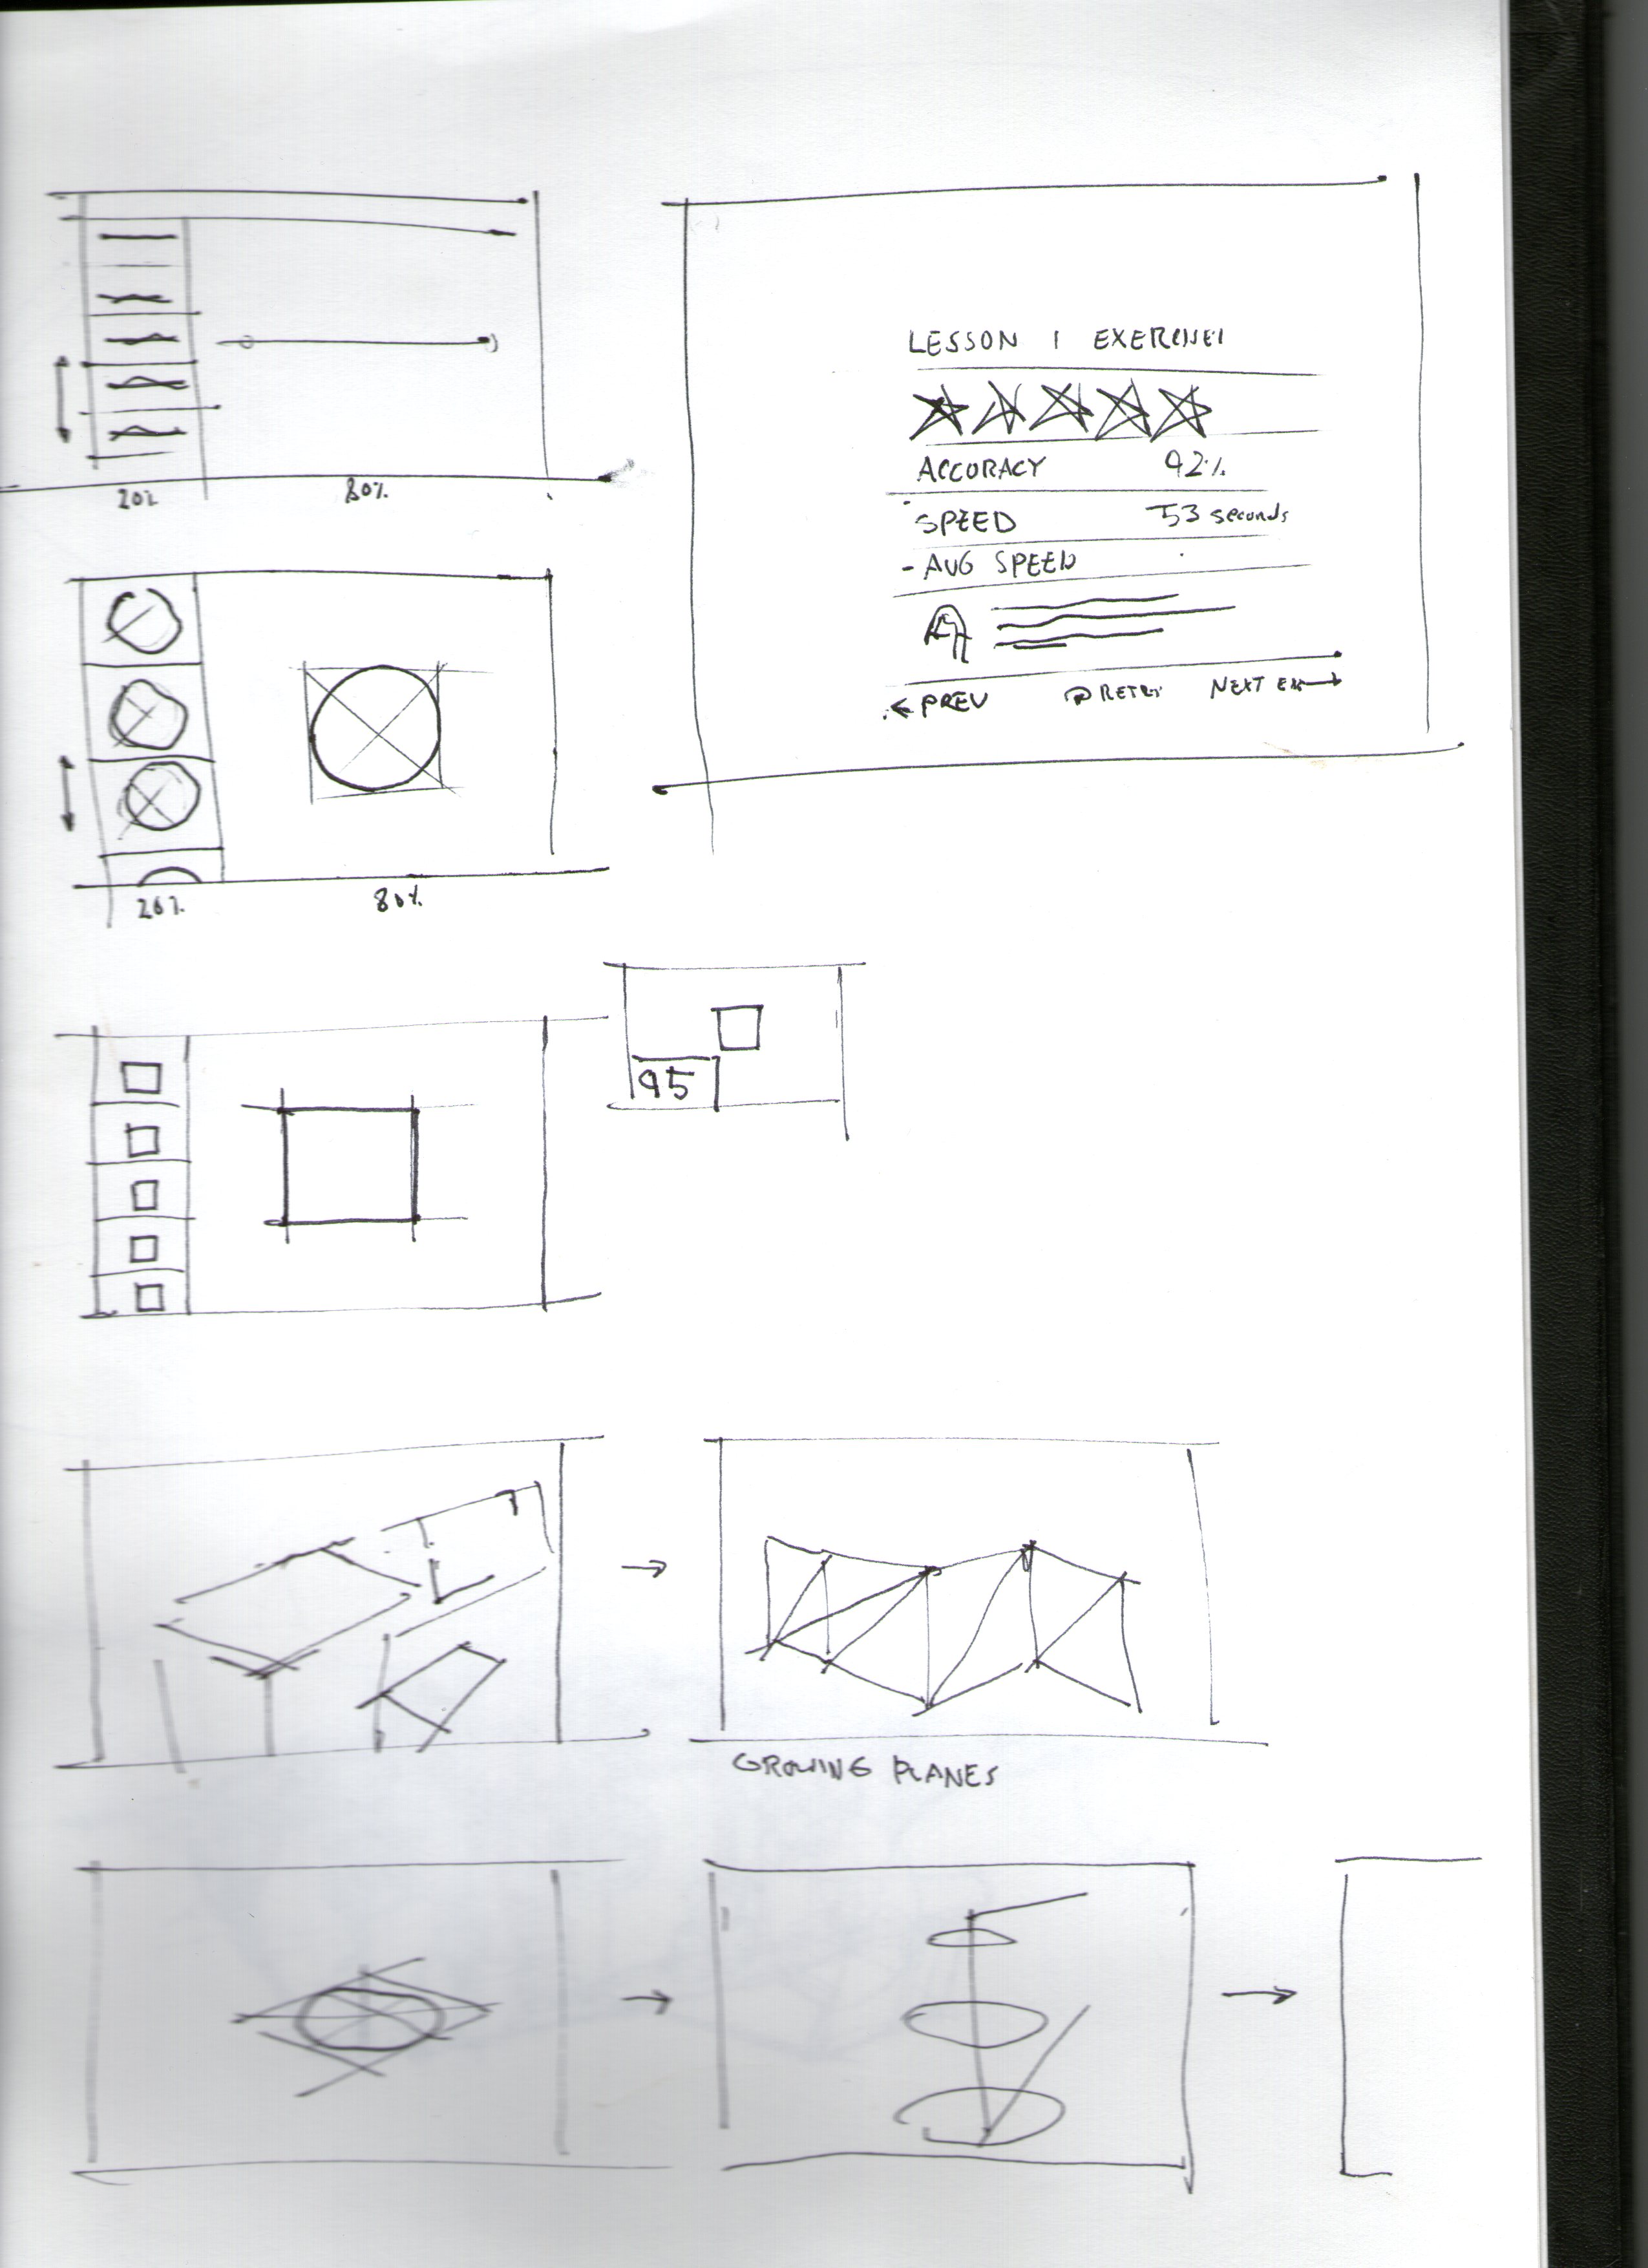 20% 80%
LESSON 1 EXERCISE1
ACCURACY 92%
SPEED 53 seconds
- AVG SPEED
← PREV RETRY NEXT EX →
20% 80%
95
GROWING PLANES